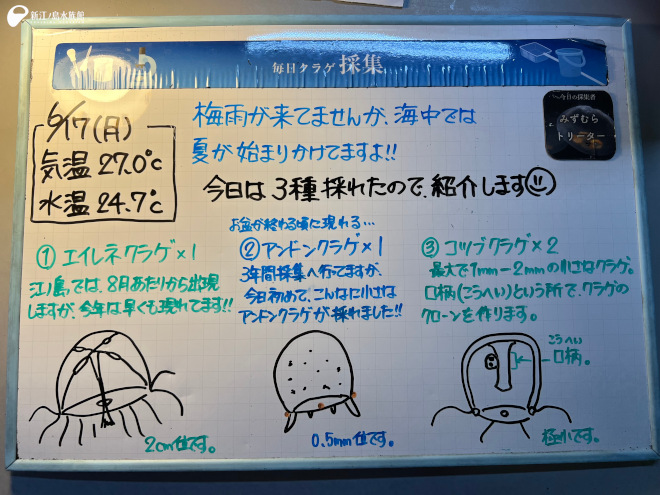 新江ノ島水族館
毎日クラゲ採集
6/17(月)
気温 27.0℃
水温 24.7℃
梅雨が来てませんが、海中では
夏が始まりかけてますよ!!
今日は3種採れたので、紹介します
今日の採集者
みずむら
トリーター
①エイレネクラゲ×1
江ノ島では、8月あたりから出現
しますが、今年は早くも現れてます!!
2cm位です。
お盆が終わる頃に現れる...
②アンドンクラゲ×1
3年間採集へ行ってますが、
今日初めて、こんなに小さな
アンドンクラゲが採れました!!
0.5mm位です。
③コツブクラゲ×2
最大で1mm-2mmの小さなクラゲ。
口柄(こうへい)という所で、クラゲの
クローンを作ります。
こうへい
口柄。
極小です。